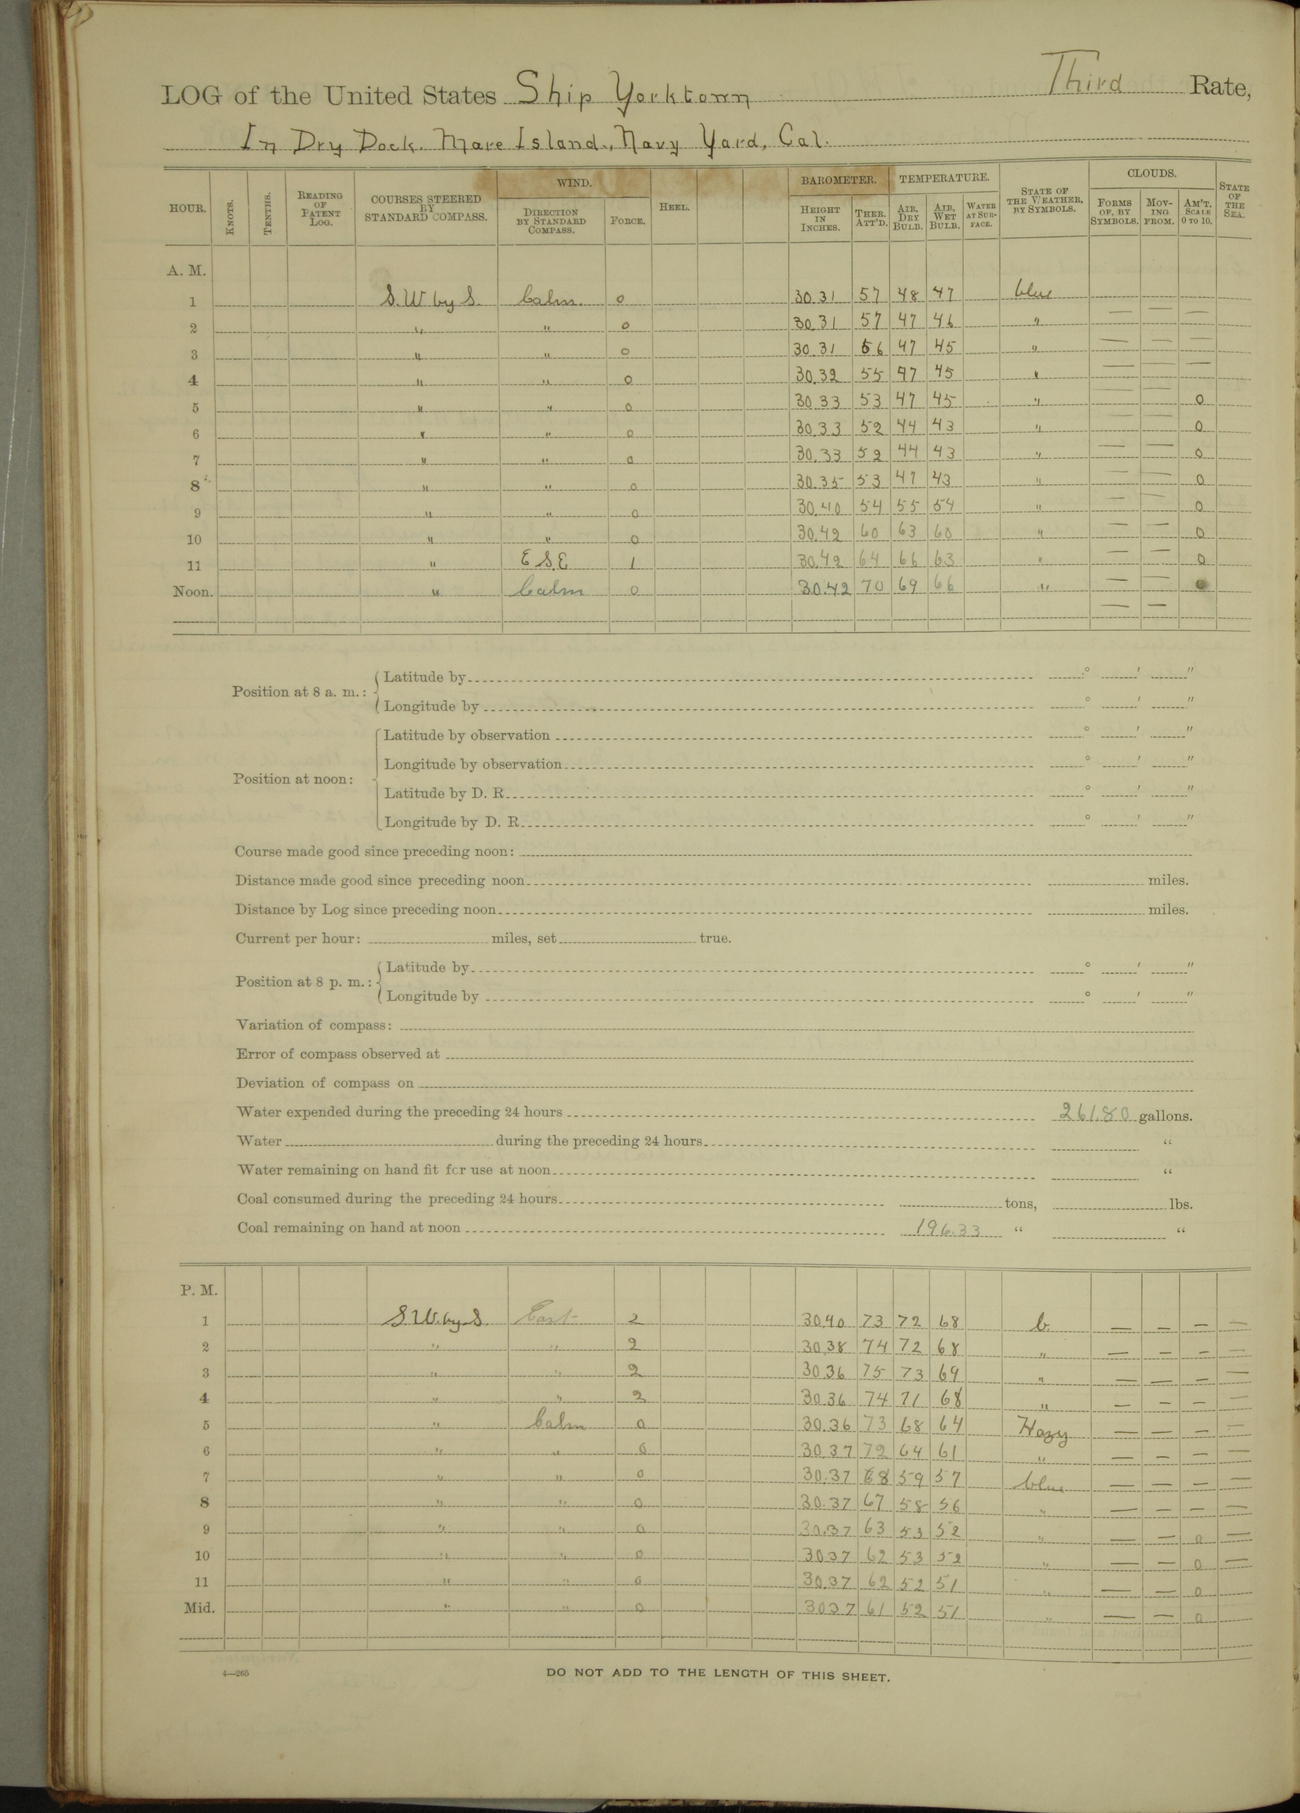 LOG of the United States Ship Yorktown Third Rate,
In Dry Dock. Mare Island, Navy Yard, Cal.
HOUR. KNOTS. TENTHS. READING OF PATENT LOG. COURSES STEERED BY STANDARD COMPASS. WIND. DIRECTION BY STANDARD COMPASS. FORCE. HEEL. BAROMETER. HEIGHT IN INCHES. THER. ATT'D. TEMPERATURE. AIR, DRY BULB. AIR, WET BULB. WATER AT SURFACE. STATE OF THE WEATHER, BY SYMBOLS. CLOUDS. FORMS OF, BY SYMBOLS. MOVING FROM. AM'T. SCALE 0 TO 10. STATE OF THE SEA.
A. M.
1 S.W by S. Calm. 0 30.31 57 48 47 blue
2 " " 0 30.31 57 47 46 " — — —
3 " " 0 30.31 56 47 45 " — — —
4 " " 0 30.32 55 47 45 " — —
5 " " 0 30.33 53 47 45 " — — 0
6 " " 0 30.33 52 44 43 " — — 0
7 " " 0 30.33 52 44 43 " — — 0
8 " " 0 30.35 53 47 43 " — — 0
9 " " 0 30.40 54 55 54 " — — 0
10 " " 0 30.42 60 63 60 " — — 0
11 " E S.E 1 30.42 64 66 63 " — — 0
Noon. " Calm 0 30.42 70 69 66 " — — 0
— —
Position at 8 a. m.: Latitude by ° ′ ″
Longitude by ° ′ ″
Position at noon: Latitude by observation ° ′ ″
Longitude by observation ° ′ ″
Latitude by D. R. ° ′ ″
Longitude by D. R. ° ′ ″
Course made good since preceding noon:
Distance made good since preceding noon miles.
Distance by Log since preceding noon miles.
Current per hour: miles, set true.
Position at 8 p. m.: Latitude by ° ′ ″
Longitude by ° ′ ″
Variation of compass:
Error of compass observed at
Deviation of compass on
Water expended during the preceding 24 hours 261.80 gallons.
Water during the preceding 24 hours "
Water remaining on hand fit for use at noon "
Coal consumed during the preceding 24 hours tons, lbs.
Coal remaining on hand at noon 196.33 " "
P. M.
1 S.W. by S. East 2 30.40 73 72 68 b. — — — —
2 " " 2 30.38 74 72 68 " — — — —
3 " " 2 30.36 75 73 69 " — — — —
4 " " 2 30.36 74 71 68 " — — — —
5 " Calm 0 30.36 73 68 64 Hazy — — — —
6 " " 0 30.37 72 64 61 " — — — —
7 " " 0 30.37 68 59 57 blue — — — —
8 " " 0 30.37 67 58 56 " — — — —
9 " " 0 30.37 63 53 52 " — — 0 —
10 " " 0 30.37 62 53 52 " — — 0 —
11 " " 0 30.37 62 52 51 " — — 0
Mid. " " 0 30.37 61 52 51 " — — 0
4—265 DO NOT ADD TO THE LENGTH OF THIS SHEET.